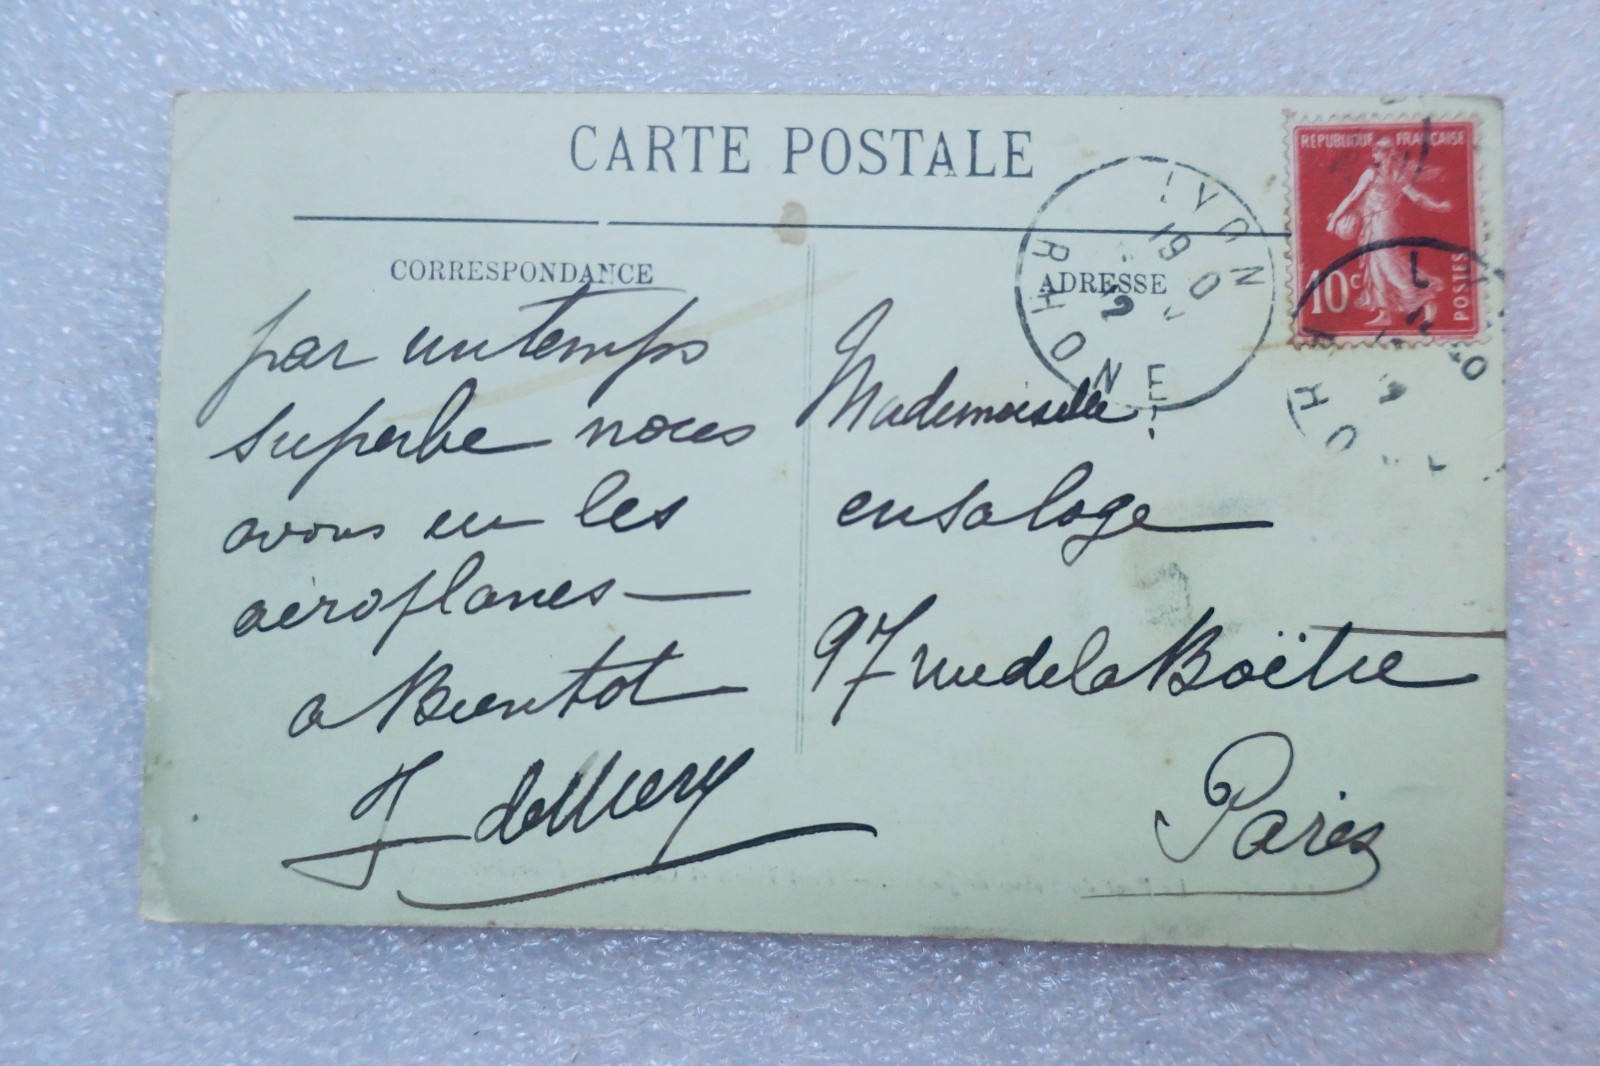 CARTE POSTALE
CORRESPONDANCE
par un temps
superbe nous
avons eu les
aéroplanes —
a Bientot
J de
ADRESSE
Mademoiselle
ensaloge
97 rue de la Boëtie
Paris
REPUBLIQUE FRANCAISE
10c
POSTES
LYON
RHONE